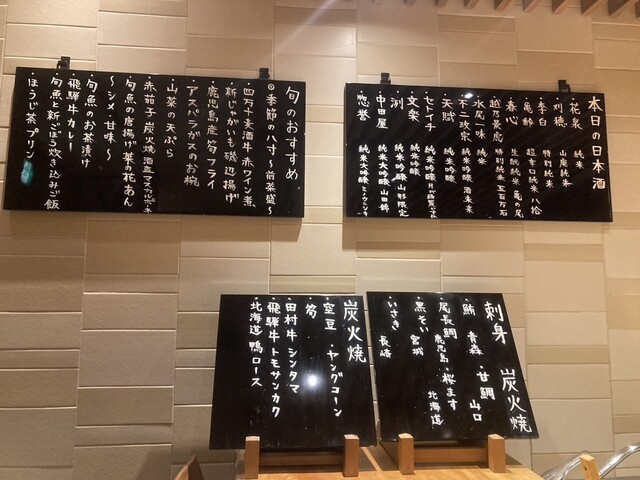 本日の日本酒
・花泉 純米
・刈穂 山廃純米
・李白 特別純米
・亀齢 超辛口純米 八拾
・春心 生酛純米 亀の尾
・越乃景虎 特別純米 五百万石
・水尾 一味 純米
・不二才宗 純米吟醸 酒未来
・天賦 純米吟醸
・セトイチ 純米吟醸
・文楽 純米吟醸
・洌 純米吟醸 山形限定
・中田屋 純米大吟醸 山田錦
・惣誉 純米大吟醸
旬のおすすめ
◎季節の八寸〜前菜盛〜
・四万十麦酒牛 赤ワイン煮
・新じゃがいも磯辺揚げ
・鹿児島産筍フライ
・アスパラガスのお椀
・山菜の天ぷら
・赤茄子 炭火焼 酒盗マスカルポーネ
・旬魚の唐揚げ 菜の花あん
〜シメ・甘味〜
・旬魚のお茶漬け
・飛騨牛カレー
・旬魚と新ごぼう炊き込みご飯
・ほうじ茶プリン
刺身 炭火焼
・鮪 青森 ・甘鯛 山口
・尾長鯛 鹿児島 ・桜ます 北海道
・黒そい 宮城
・いさき 長崎
炭火焼
・空豆 ・ヤングコーン
・筍
・田村牛 シンタマ
・飛騨牛 トモサンカク
・北海道 鴨ロース